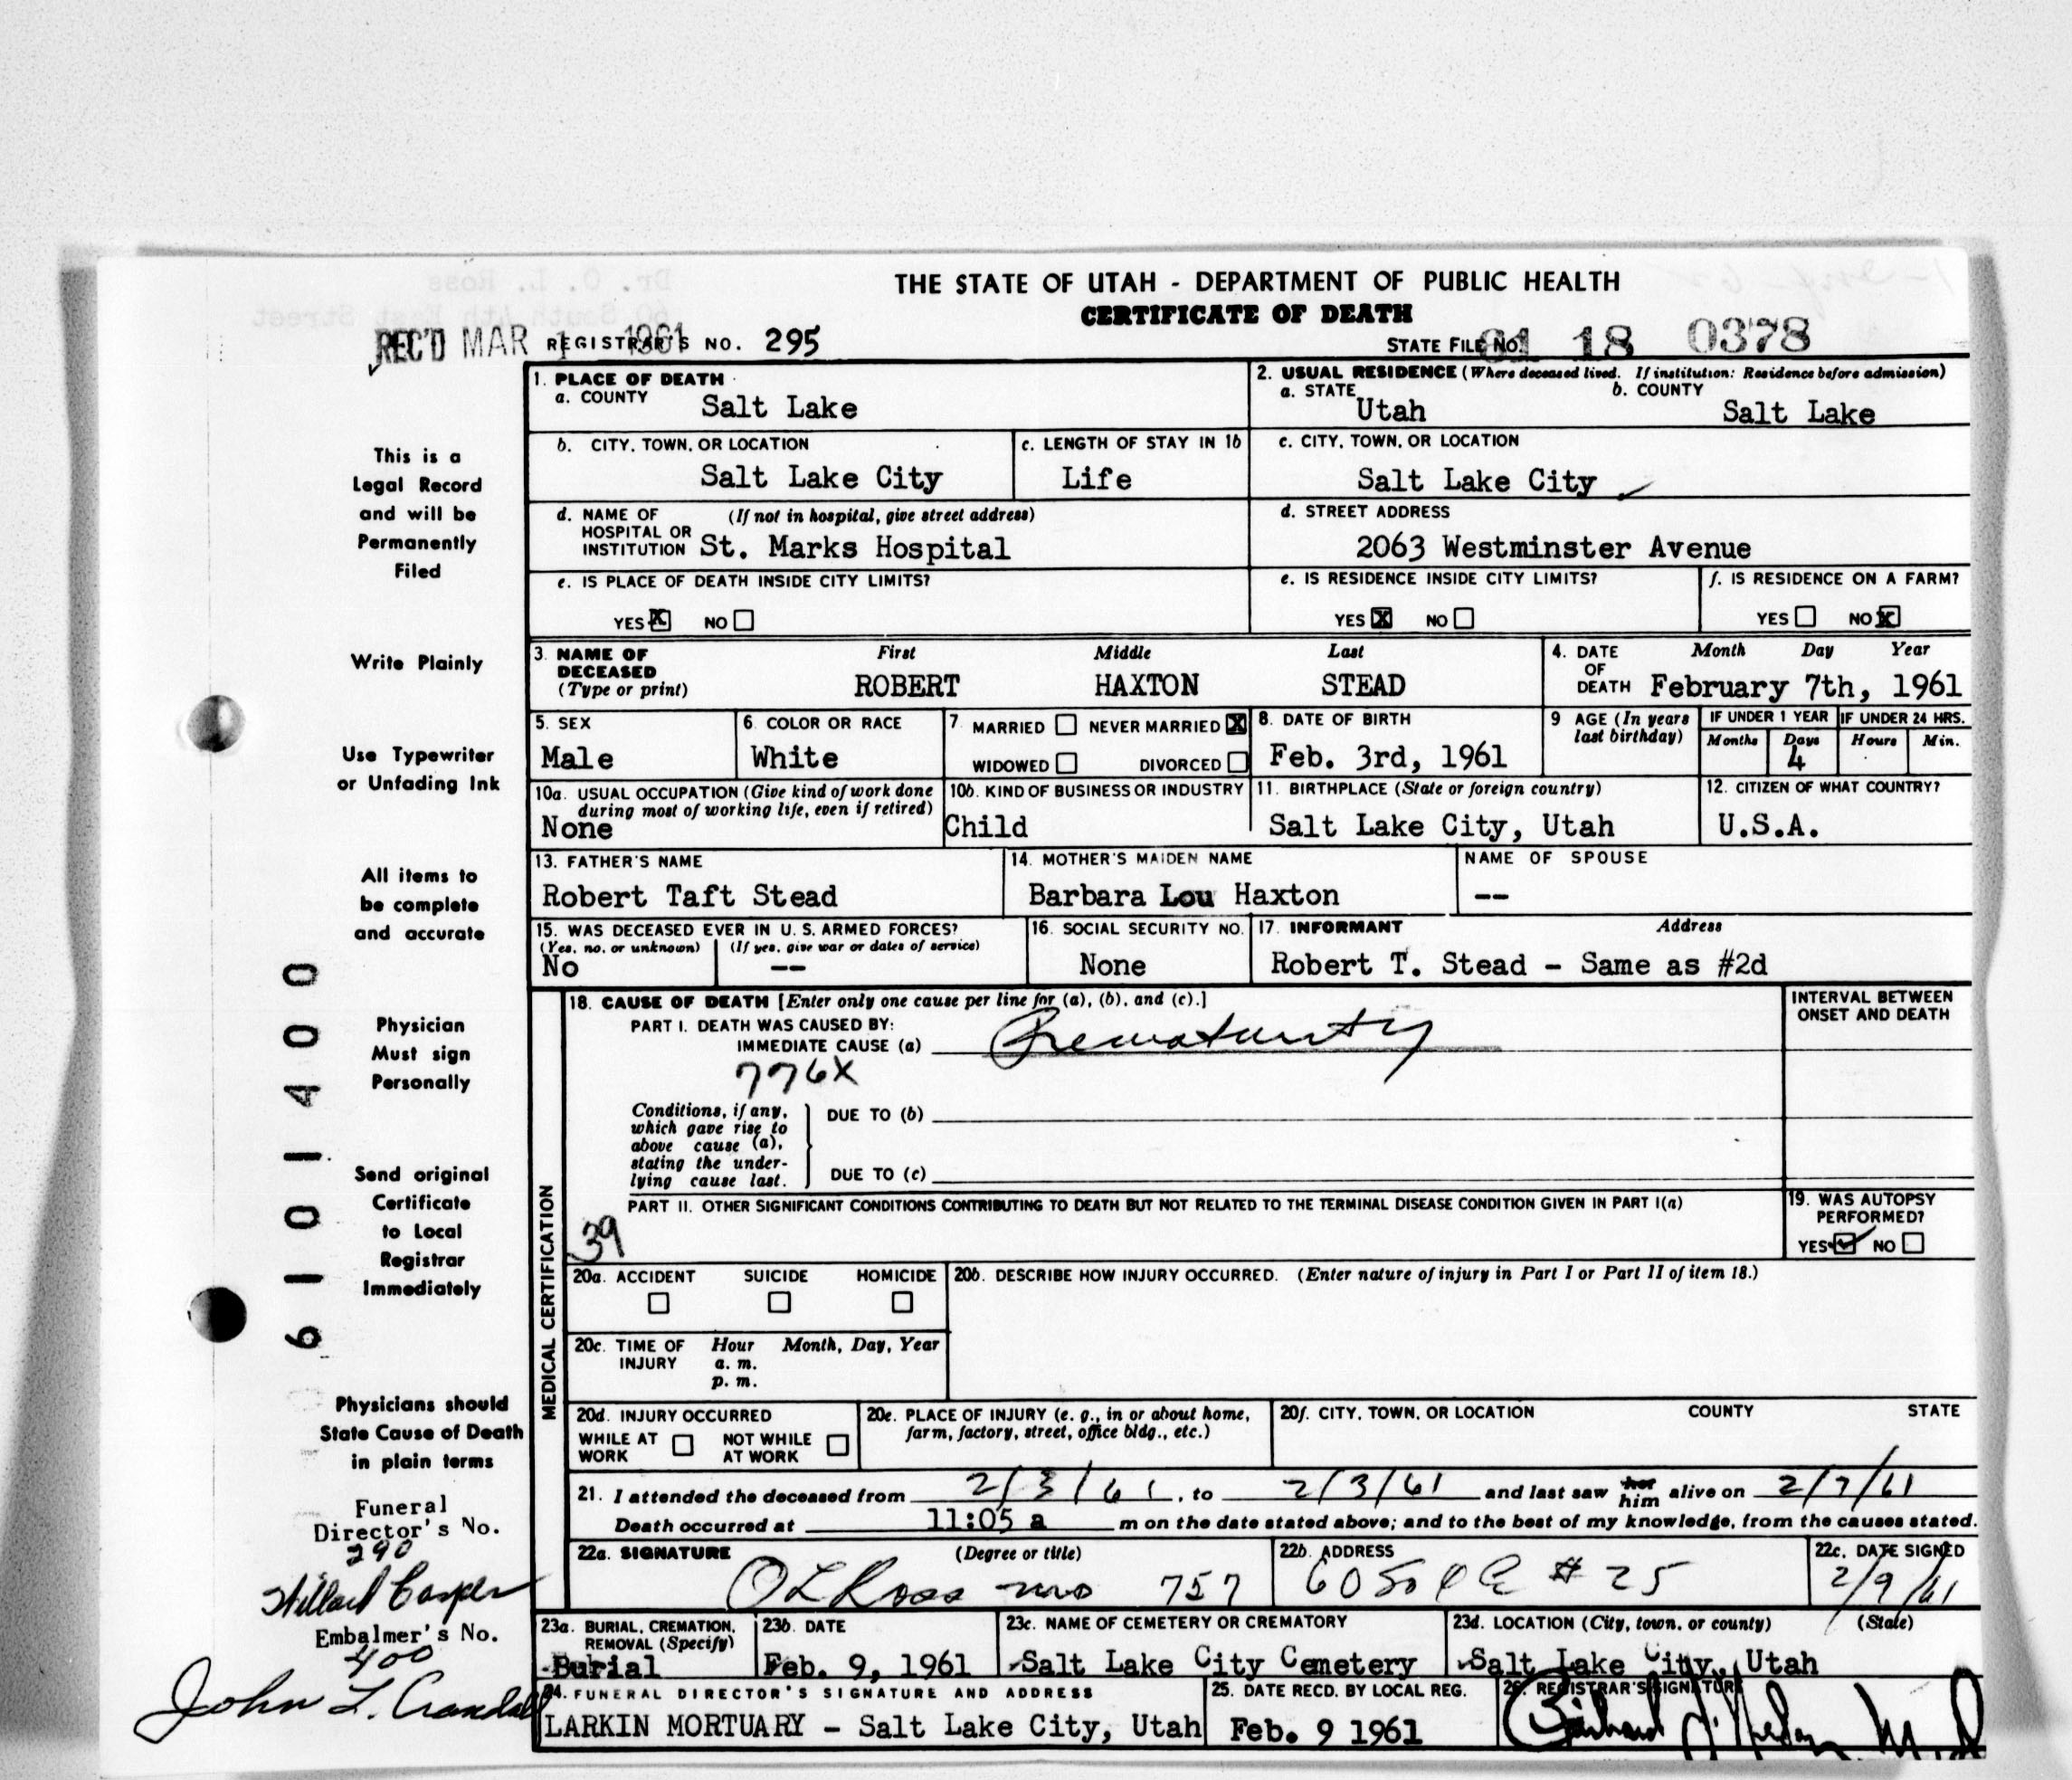 THE STATE OF UTAH - DEPARTMENT OF PUBLIC HEALTH
CERTIFICATE OF DEATH
REC'D MAR 1 1961 REGISTRAR'S NO. 295
STATE FILE NO. 61 18 0378
1. PLACE OF DEATH
a. COUNTY Salt Lake
2. USUAL RESIDENCE (Where deceased lived. If institution: Residence before admission)
a. STATE Utah b. COUNTY Salt Lake
b. CITY, TOWN, OR LOCATION Salt Lake City
c. LENGTH OF STAY IN 1b Life
c. CITY, TOWN, OR LOCATION Salt Lake City
d. NAME OF HOSPITAL OR INSTITUTION (If not in hospital, give street address) St. Marks Hospital
d. STREET ADDRESS 2063 Westminster Avenue
e. IS PLACE OF DEATH INSIDE CITY LIMITS?
YES X NO
e. IS RESIDENCE INSIDE CITY LIMITS?
YES X NO
f. IS RESIDENCE ON A FARM?
YES NO X
3. NAME OF DECEASED (Type or print)
First Middle Last
ROBERT HAXTON STEAD
4. DATE OF DEATH Month Day Year
February 7th, 1961
5. SEX Male
6. COLOR OR RACE White
7. MARRIED NEVER MARRIED X
WIDOWED DIVORCED
8. DATE OF BIRTH Feb. 3rd, 1961
9 AGE (In years last birthday)
IF UNDER 1 YEAR IF UNDER 24 HRS.
Months Days Hours Min.
4
10a. USUAL OCCUPATION (Give kind of work done during most of working life, even if retired)
None
10b. KIND OF BUSINESS OR INDUSTRY
Child
11. BIRTHPLACE (State or foreign country)
Salt Lake City, Utah
12. CITIZEN OF WHAT COUNTRY?
U.S.A.
13. FATHER'S NAME
Robert Taft Stead
14. MOTHER'S MAIDEN NAME
Barbara Lou Haxton
NAME OF SPOUSE
--
15. WAS DECEASED EVER IN U. S. ARMED FORCES?
(Yes, no, or unknown) (If yes, give war or dates of service)
No --
16. SOCIAL SECURITY NO.
None
17. INFORMANT Address
Robert T. Stead - Same as #2d
MEDICAL CERTIFICATION
18. CAUSE OF DEATH [Enter only one cause per line for (a), (b), and (c).]
INTERVAL BETWEEN ONSET AND DEATH
PART I. DEATH WAS CAUSED BY:
IMMEDIATE CAUSE (a) Prematurity
776X
Conditions, if any, which gave rise to above cause (a), stating the underlying cause last.
DUE TO (b)
DUE TO (c)
PART II. OTHER SIGNIFICANT CONDITIONS CONTRIBUTING TO DEATH BUT NOT RELATED TO THE TERMINAL DISEASE CONDITION GIVEN IN PART I(a)
39
19. WAS AUTOPSY PERFORMED?
YES ✓ NO
20a. ACCIDENT SUICIDE HOMICIDE
20b. DESCRIBE HOW INJURY OCCURRED. (Enter nature of injury in Part I or Part II of item 18.)
20c. TIME OF INJURY Hour Month, Day, Year
a. m.
p. m.
20d. INJURY OCCURRED
WHILE AT WORK NOT WHILE AT WORK
20e. PLACE OF INJURY (e. g., in or about home, farm, factory, street, office bldg., etc.)
20f. CITY, TOWN, OR LOCATION COUNTY STATE
21. I attended the deceased from 2/3/61, to 2/3/61 and last saw her him alive on 2/7/61
Death occurred at 11:05 a m on the date stated above; and to the best of my knowledge, from the causes stated.
22a. SIGNATURE (Degree or title)
O L Ross MD 757
22b. ADDRESS
22c. DATE SIGNED
2/9/61
23a. BURIAL, CREMATION, REMOVAL (Specify)
Burial
23b. DATE
Feb. 9, 1961
23c. NAME OF CEMETERY OR CREMATORY
Salt Lake City Cemetery
23d. LOCATION (City, town, or county) (State)
Salt Lake City, Utah
24. FUNERAL DIRECTOR'S SIGNATURE AND ADDRESS
LARKIN MORTUARY - Salt Lake City, Utah
25. DATE RECD. BY LOCAL REG.
Feb. 9 1961
26. REGISTRAR'S SIGNATURE
This is a
Legal Record
and will be
Permanently
Filed
Write Plainly
Use Typewriter
or Unfading Ink
All items to
be complete
and accurate
Physician
Must sign
Personally
Send original
Certificate
to Local
Registrar
Immediately
Physicians should
State Cause of Death
in plain terms
Funeral
Director's No.
290
Willard Casper
Embalmer's No.
400
John L. Crandall
6101400
Dr. O. L. Ross